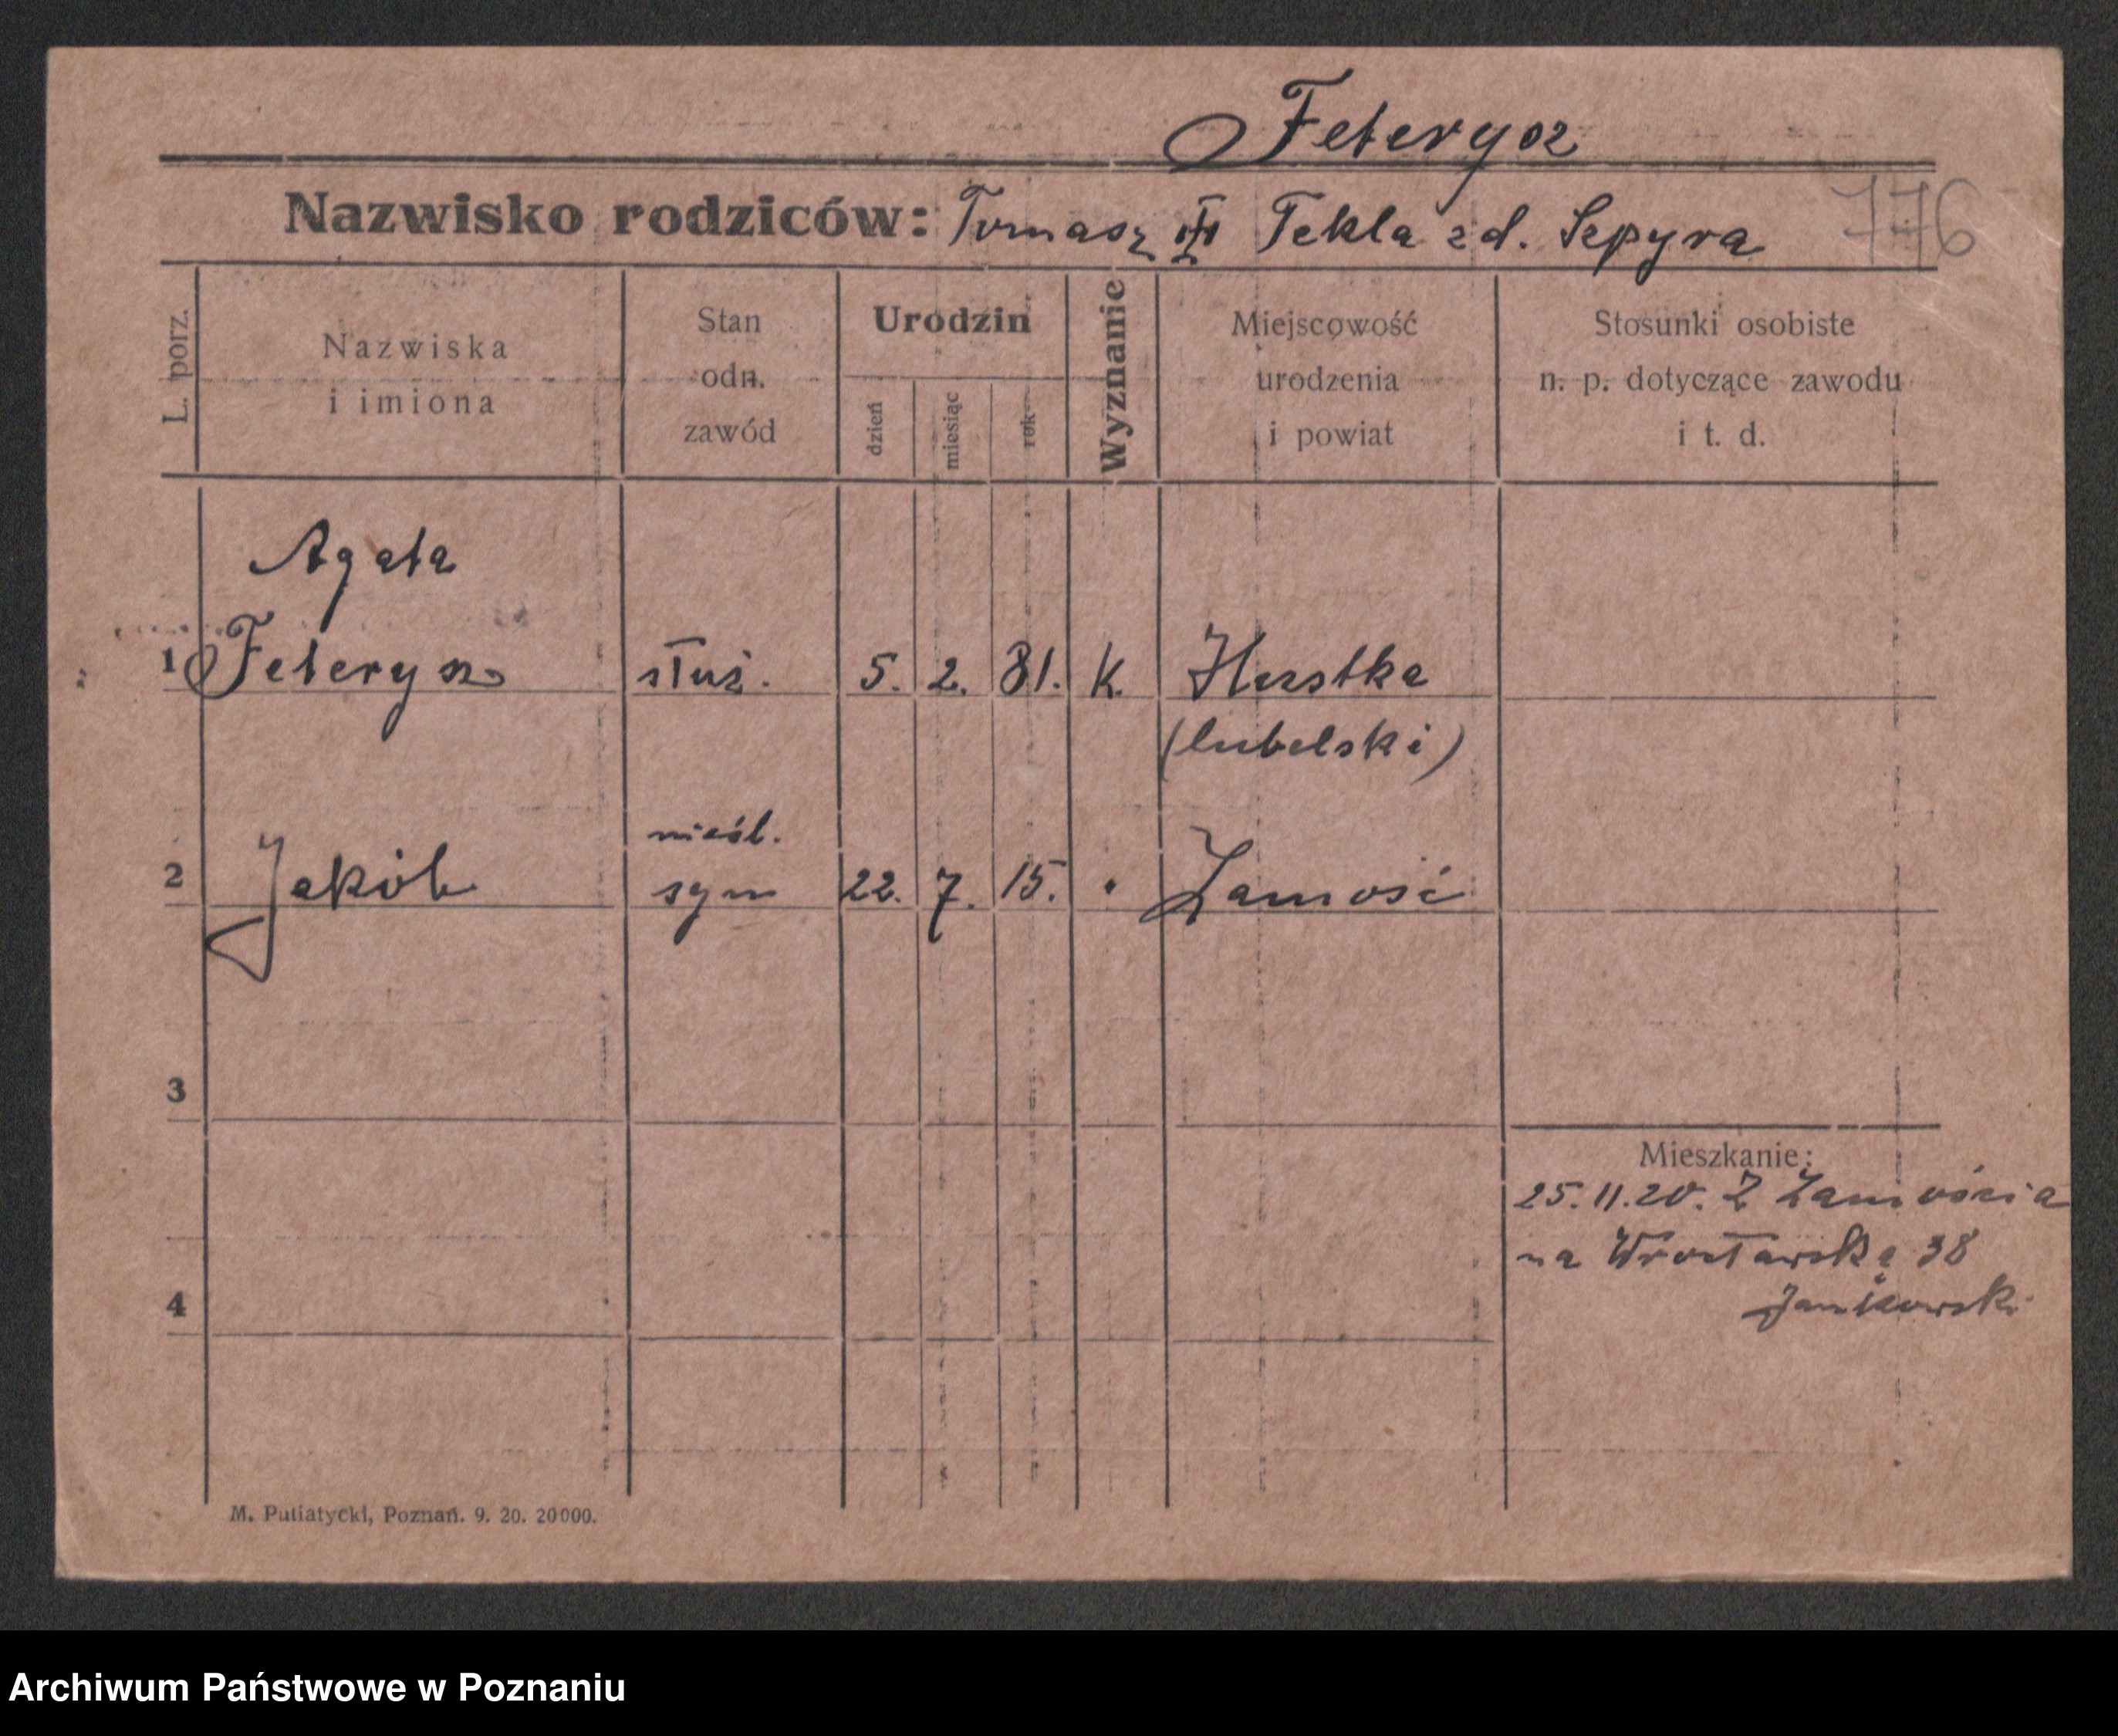 Feterycz
Nazwisko rodziców: Tomasz Tekla zd. Szpyra 776
L. porz.
Nazwiska
i imiona
Stan
odn.
zawód
Urodzin
dzień
miesiąc
rok
Wyznanie
Miejscowość
urodzenia
i powiat
Stosunki osobiste
n. p. dotyczące zawodu
i t. d.
Agata
1 Feterycz służ. 5. 2. 81. K.
(lubelski)
nieśl.
2 Jakób syn 22. 7. 15. " Zamość
3
Mieszkanie:
25.11.20. Z Zamościa
na Wrocławską 38
Jankowski
4
M. Putiatycki, Poznań. 9. 20. 20000.
Archiwum Państwowe w Poznaniu